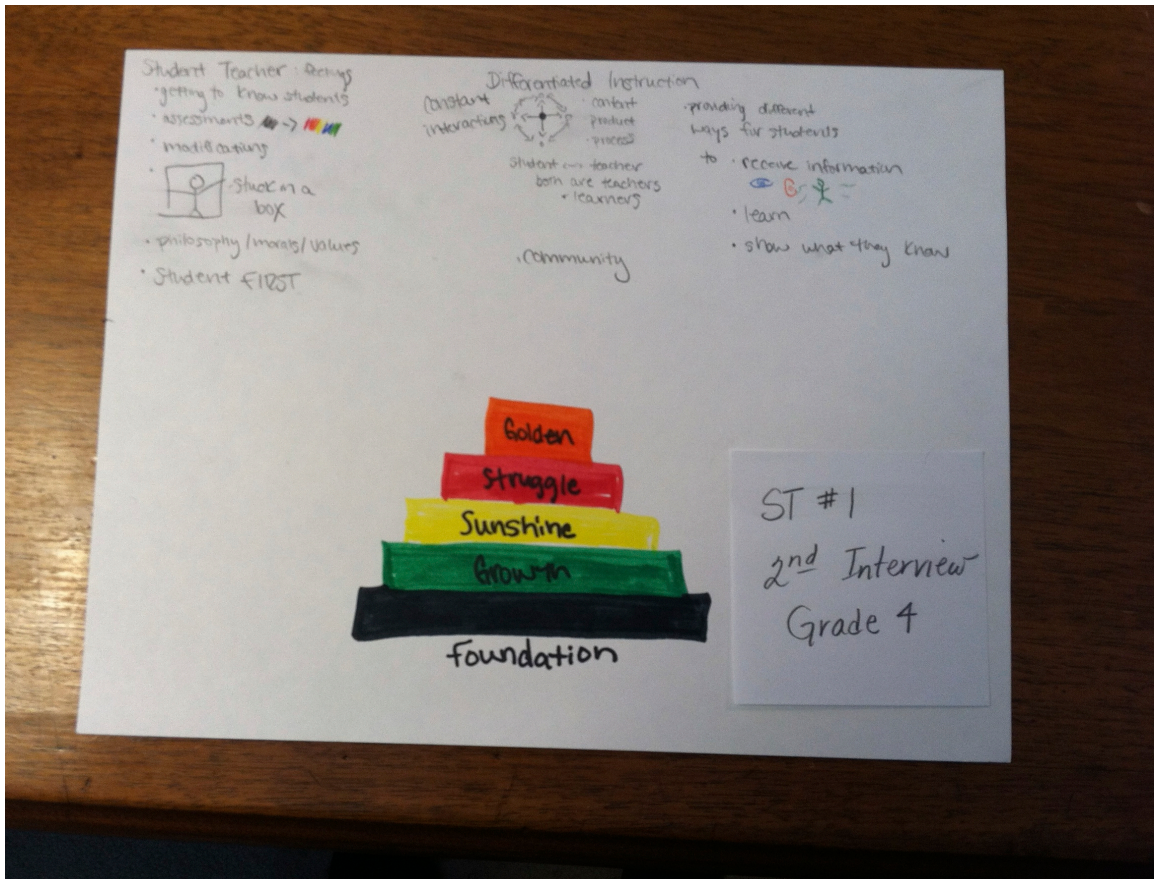 Student Teacher: feelings
• getting to know students
• assessments →
• modifications
• stuck in a
box
• philosophy/morals/values
• Student FIRST
Differentiated Instruction
constant
interacting
• content
• product
• process
Student teacher
both are teachers
+ learners
• community
• providing different
ways for students
to • receive information
• learn
• show what they know
Golden
Struggle
Sunshine
Growth
Foundation
ST #1
2nd Interview
Grade 4